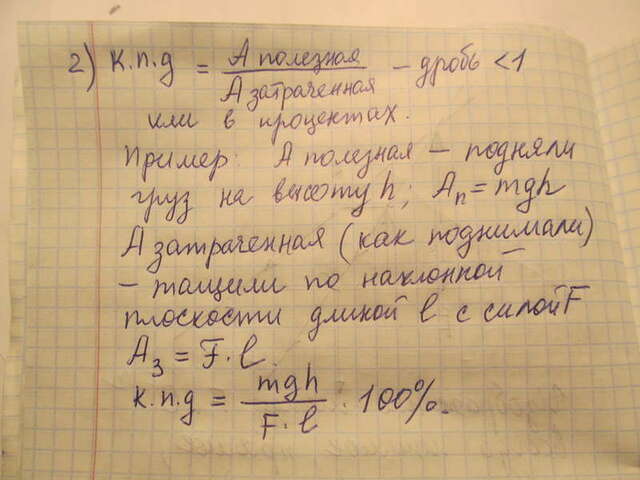 2) К.п.д = A полезная / A затраченная – дробь < 1
или в процентах.
Пример: A полезная – подняли
груз на высоту h; Aп = mgh
A затраченная (как поднимали)
– тащили по наклонной
плоскости длиной l с силой F
Aз = F·l.
к.п.д = mgh / F·l · 100%.